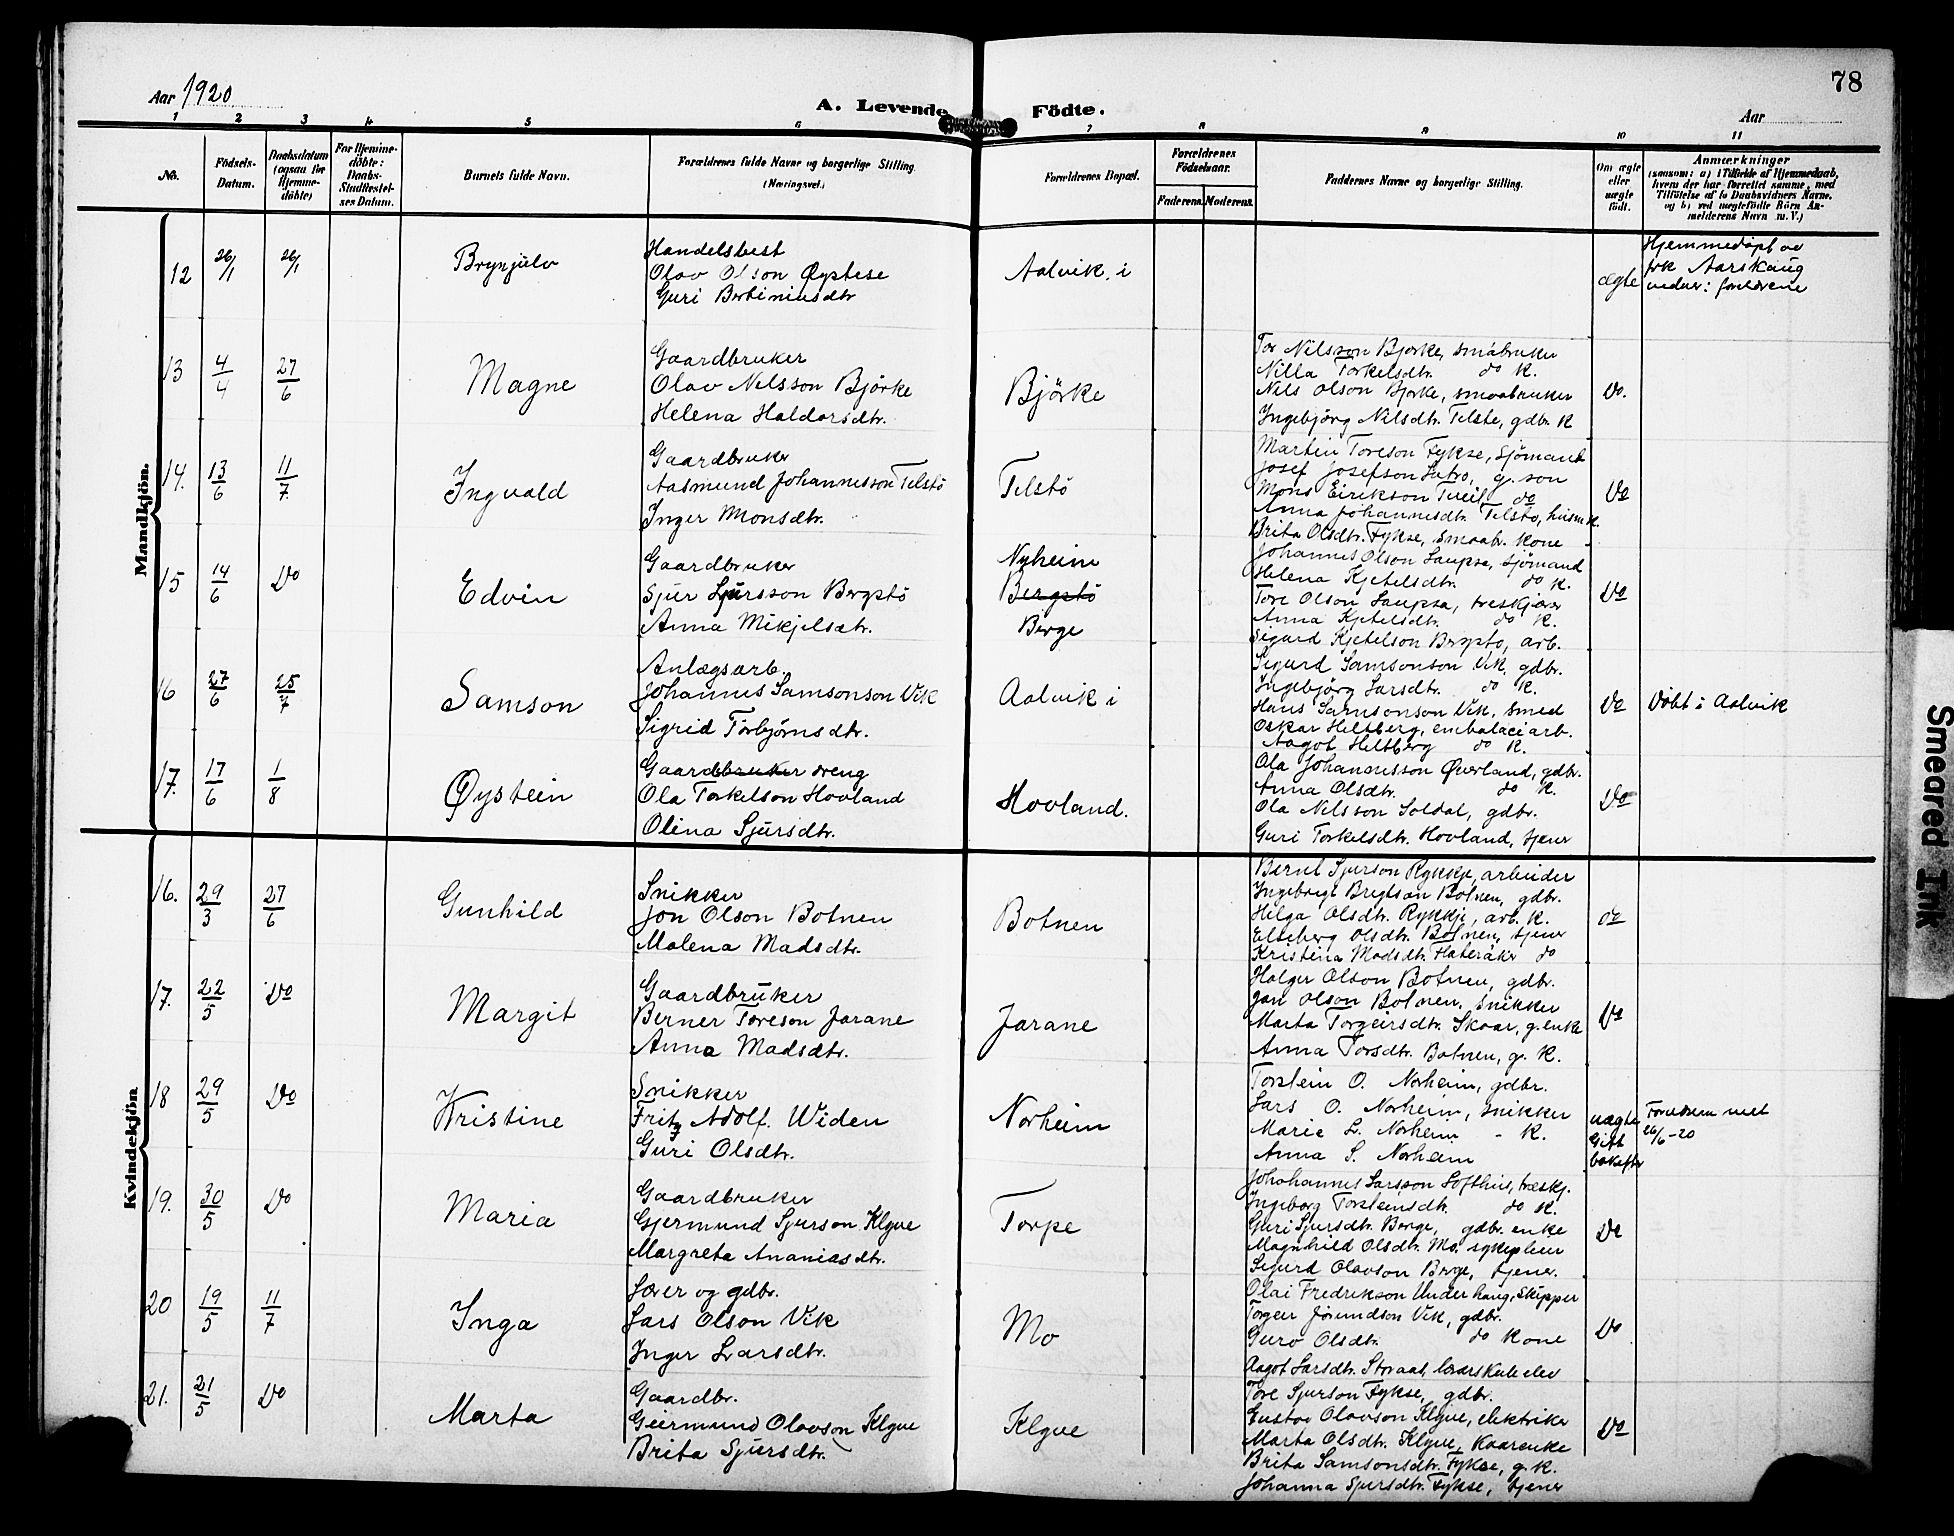 78
Aar 1920
A. Levende Födte.
Aar
1 2 3 4 5 6 7 8 9 10 11
No.
Födsels-Datum.
Daabsdatum (ogsaa for Hjemmedöbte)
For Hjemmedöbte: Daabs-Stadfæstelses Datum.
Barnets fulde Navn.
Forældrenes fulde Navne og borgerlige Stilling. (Næringsvei.)
Forældrenes Bopæl.
Forældrenes Födselsaar.
Faderens. Moderens.
Faddernes Navne og borgerlige Stilling.
Om ægte eller uægte födt.
Anmærkninger
(saasom: a) i Tilfælde af Hjemmedaab, hvem der har forrettet samme, med Tilföielse af to Daabsvidners Navne, og b) ved uægtefödte Börn Anmelderens Navn m. V.)
Mandkjön.
12 26/1 26/1 Brynjulv
Handelsbest
Olav Olson Øystese
Guri Bertiniusdtr
Aalvik i
ægte
Hjemmedöpt av
frk Aarskaug
vidner: foreldrene
13 4/4 27/6 Magne
Gaardbruker
Olav Nelsson Björke
Helena Haldorsdtr.
Björke
Tor Nilsson Bjorke, småbruker
Nilla Torkelsdtr. do K.
Nils Olson Bjorke, smaabruker
Ingebjörg Nilsdtr. Telste, gdbr. K
Do.
14. 13/6 11/7 Ingvald
Gaardbruker
Aasmund Johannesson Telstö
Inger Monsdtr.
Telstö
Martin Toreson Fykse, Sjömand
Josef Josefson Sutro, g. son
Mons Eirikson Tveit, do
Anna Johannesdtr. Telsto, husm K.
Brita Olsdtr. Fykse, smaabr. kone
Do
15 14/6 Do Edvin
Gaardbruker
Sjur Sjursson Bergstö
Anna Mikjelsdtr.
Nyheim
Bergstö
Berge
Johannes Olson Laupsa, sjömand
Helena Kjetelsdtr. do K.
Tore Olson Laupsa, treskjærer
Anna Kjetelsdtr. do K.
Sigurd Kjetelson Bergsto, arb.
Do
16 27/6 25/7 Samson
Anlægsarb.
Johannes Samsonson Vik
Sigrid Torbjörnsdtr.
Aalvik i
Sigurd Samsonson Vik, gdbr.
Ingebjörg Larsdtr. do K.
Hans Samsonson Vik, smed
Oskar Heltberg, embalaciarb.
Aagot Heltberg do K.
Do
Döbt i Aalvik
17. 17/6 1/8 Øystein
Gaardbruker dreng
Ola Torkelson Hovland
Olina Sjursdtr.
Hovland.
Ola Johannesson Øverland, gdbr.
Anna Olsdtr. do K.
Ola Nilsson Soldal, gdbr.
Guri Torkelsdtr. Hovland, tjener
Do
Kvindekjön
16. 29/3 27/6 Gunhild
Snikker
Jon Olson Botnen
Malena Madsdtr.
Botnen
Bernt Sjurson Rykkje, arbeider
Ingebrigt Brigtson Botnen, gdbr.
Helga Olsdtr. Rykkje, arb. K.
Elseberg Olsdtr. Botnen, tjener
Kristina Madsdtr. Flateråker do
do
17. 22/5 Do Margit
Gaardbruker
Berner Toreson Jarane
Anna Madsdtr.
Jarane
Holger Olson Botnen, gdbr.
Jon Olson Botnen, snikker
Marta Torgeirsdtr. Skaar, g. enke
Anna Torsdtr. Botnen, g. K.
Do
18 29/5 Do Kristine
Snikker
Fritz Adolf Widen
Guri Olsdtr.
Norheim
Torstein O. Norheim, gdbr.
Lars O. Norheim, snikker
Marie L. Norheim - K.
Anna S. Norheim
uægte
Gift
bakefter
Foreldrene viet
26/6-20
19. 30/5 Do Maria
Gaardbruker
Gjermund Sjurson Klyve
Margreta Ananiasdtr.
Torpe
Johohannes Larsson Lofthus, træskj.
Ingeborg Torsteinsdtr. do K.
Guri Sjursdtr. Berge, gdbr. enke
Magnhild Olsdtr. Mo, sykepleier
Sigurd Olavson Berge, tjener.
Do
20 19/5 11/7 Inga
Lærer og gdbr.
Lars Olson Vik
Inger Larsdtr.
Mo
Olai Fredrikson Underhaug, Skipper
Torgeir Jörundson Vik, gdbr.
Guro Olsdtr. do Kone
Aagot Larsdtr. Storaas, lærerskuleelev
Do
21. 21/5 Do Marta
Gaardbr.
Geirmund Olavson Klyve
Brita Sjursdtr.
Klyve
Tore Sjurson Fykse, gdbr.
Gustav Olavson Klyve, elektriker
Marta Olsdtr. Klyve, Kaarenke
Brita Samsonsdtr. Fykse, g. K.
Johanna Sjursdtr. Fykse, tjener
Do
Smeared Ink